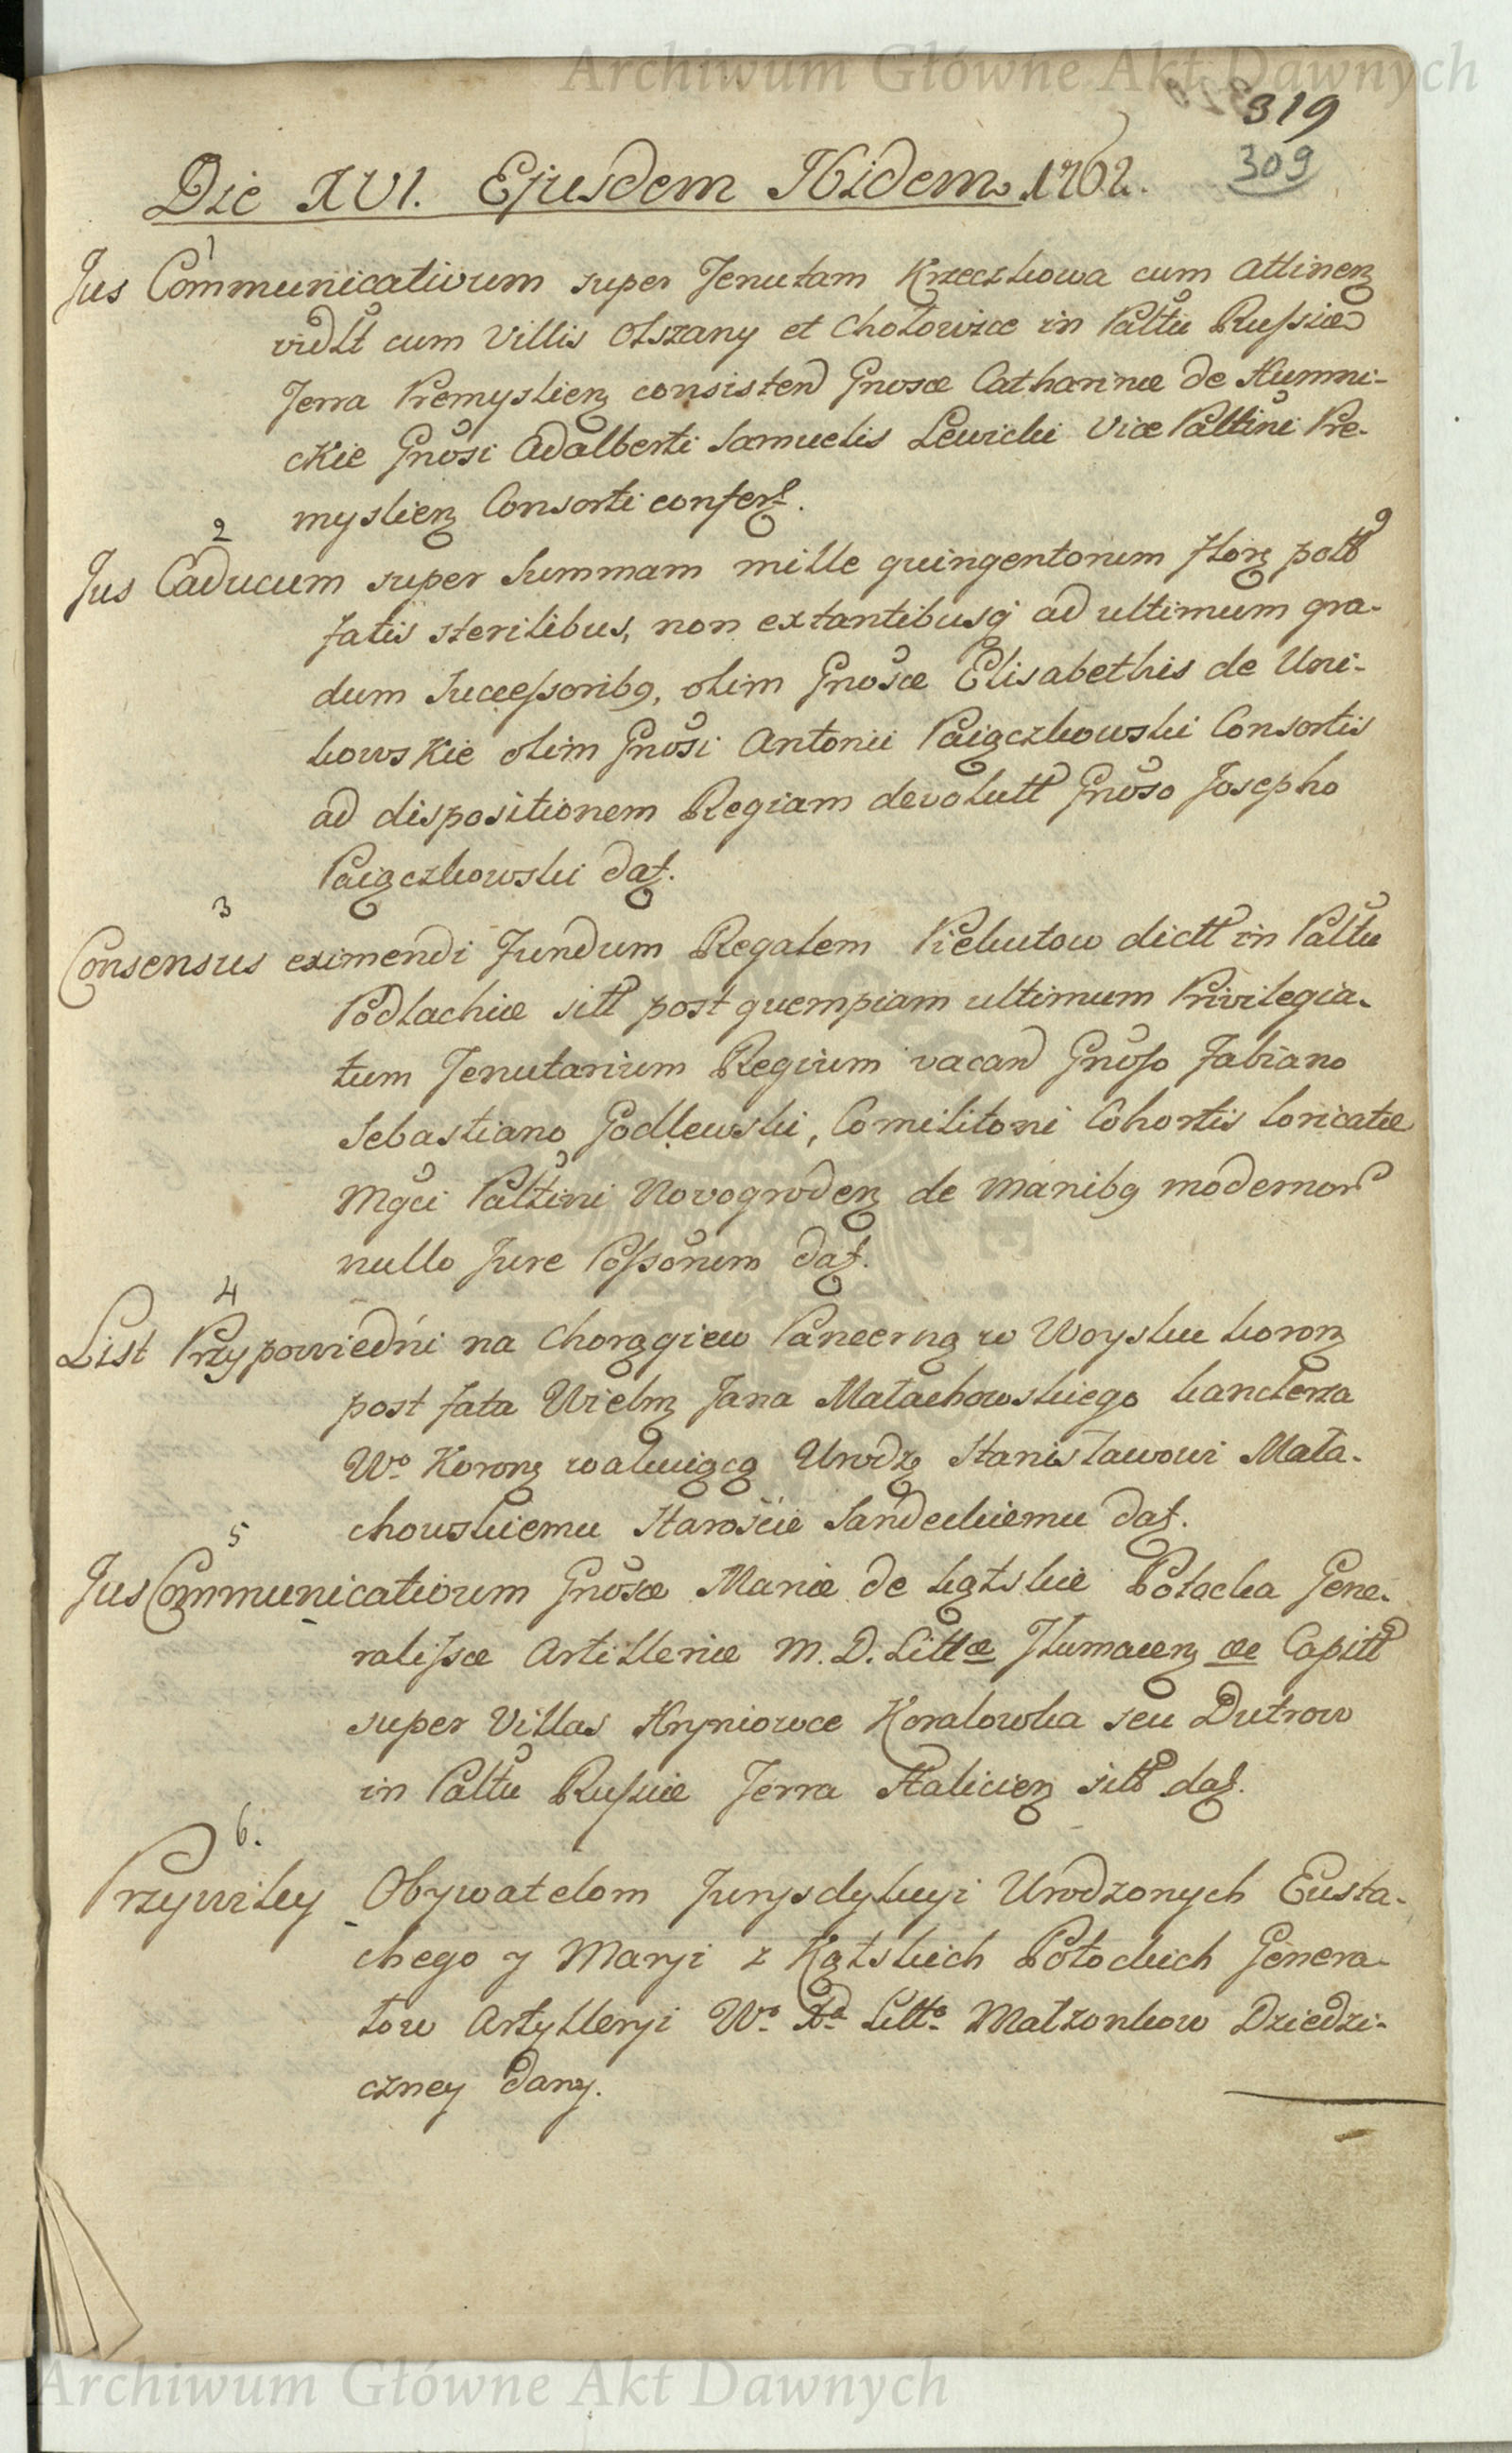 Archiwum Główne Akt Dawnych
319
309
Die XVI. Ejusdem Ibidem 1762.
1
Jus Communicativum super Tenutam Krzeczkowa cum Attinen
vidlt cum Villis Olszany et Chołowice in Paltu Russiæ
Terra Premyslien consisten Gnosæ Catharinæ de Humni-
ckie Gnosi Adalberti Samuelis Lewicki Vice Palttini Pre-
myslien Consorti confert.
2
Jus Caducum super Summam mille quingentorum flor poll
fatis sterilibus, non extantibusq ad ultimum gra-
dum Successoribq, olim Gnosæ Elisabethis de Uni-
kowskie olim Gnosi Antonii Paiączkowski Consortis
ad dispositionem Regiam devolutt Gnoso Josepho
Paiączkowski dat.
3
Consensus eximendi Fundum Regalem Piekutow dictt in Paltu
Podlachiæ sitt post quempiam ultimum Privilegia-
tum Tenutarium Regium vacan Gnoso Fabiano
Sebastiano Godlewski, Comilitoni Cohortis Loricatæ
Mgci Paltini Novogroden de manibq modernor
nullo Jure Possonum dat.
4
List Przypowiedni na Chorągiew Pancerną w Woysku koron
post fata Wielm Jana Małachowskiego kanclerza
Wo Koronn wakuiącą Urodz Stanisławowi Mała-
chowskiemu Staroście Sandeckiemu dat.
5
Jus Communicativum Gnosæ Mariæ de kątskie Potocka Gene-
ralissæ Artilleriæ M. D. Littæ Tłumacen æ Capitt
super Villas Hryniowce Koralowka seu Dutrow
in Paltu Russiæ Terra Halicien sitt dat.
6.
Przywiley Obywatelom Jurysdykcyi Urodzonych Eusta-
chego y Maryi z Kątskich Potockich Genera-
łow Artylleryi Wo Xa Litto Małzonkow Dziedzi-
czney dany.
Archiwum Główne Akt Dawnych